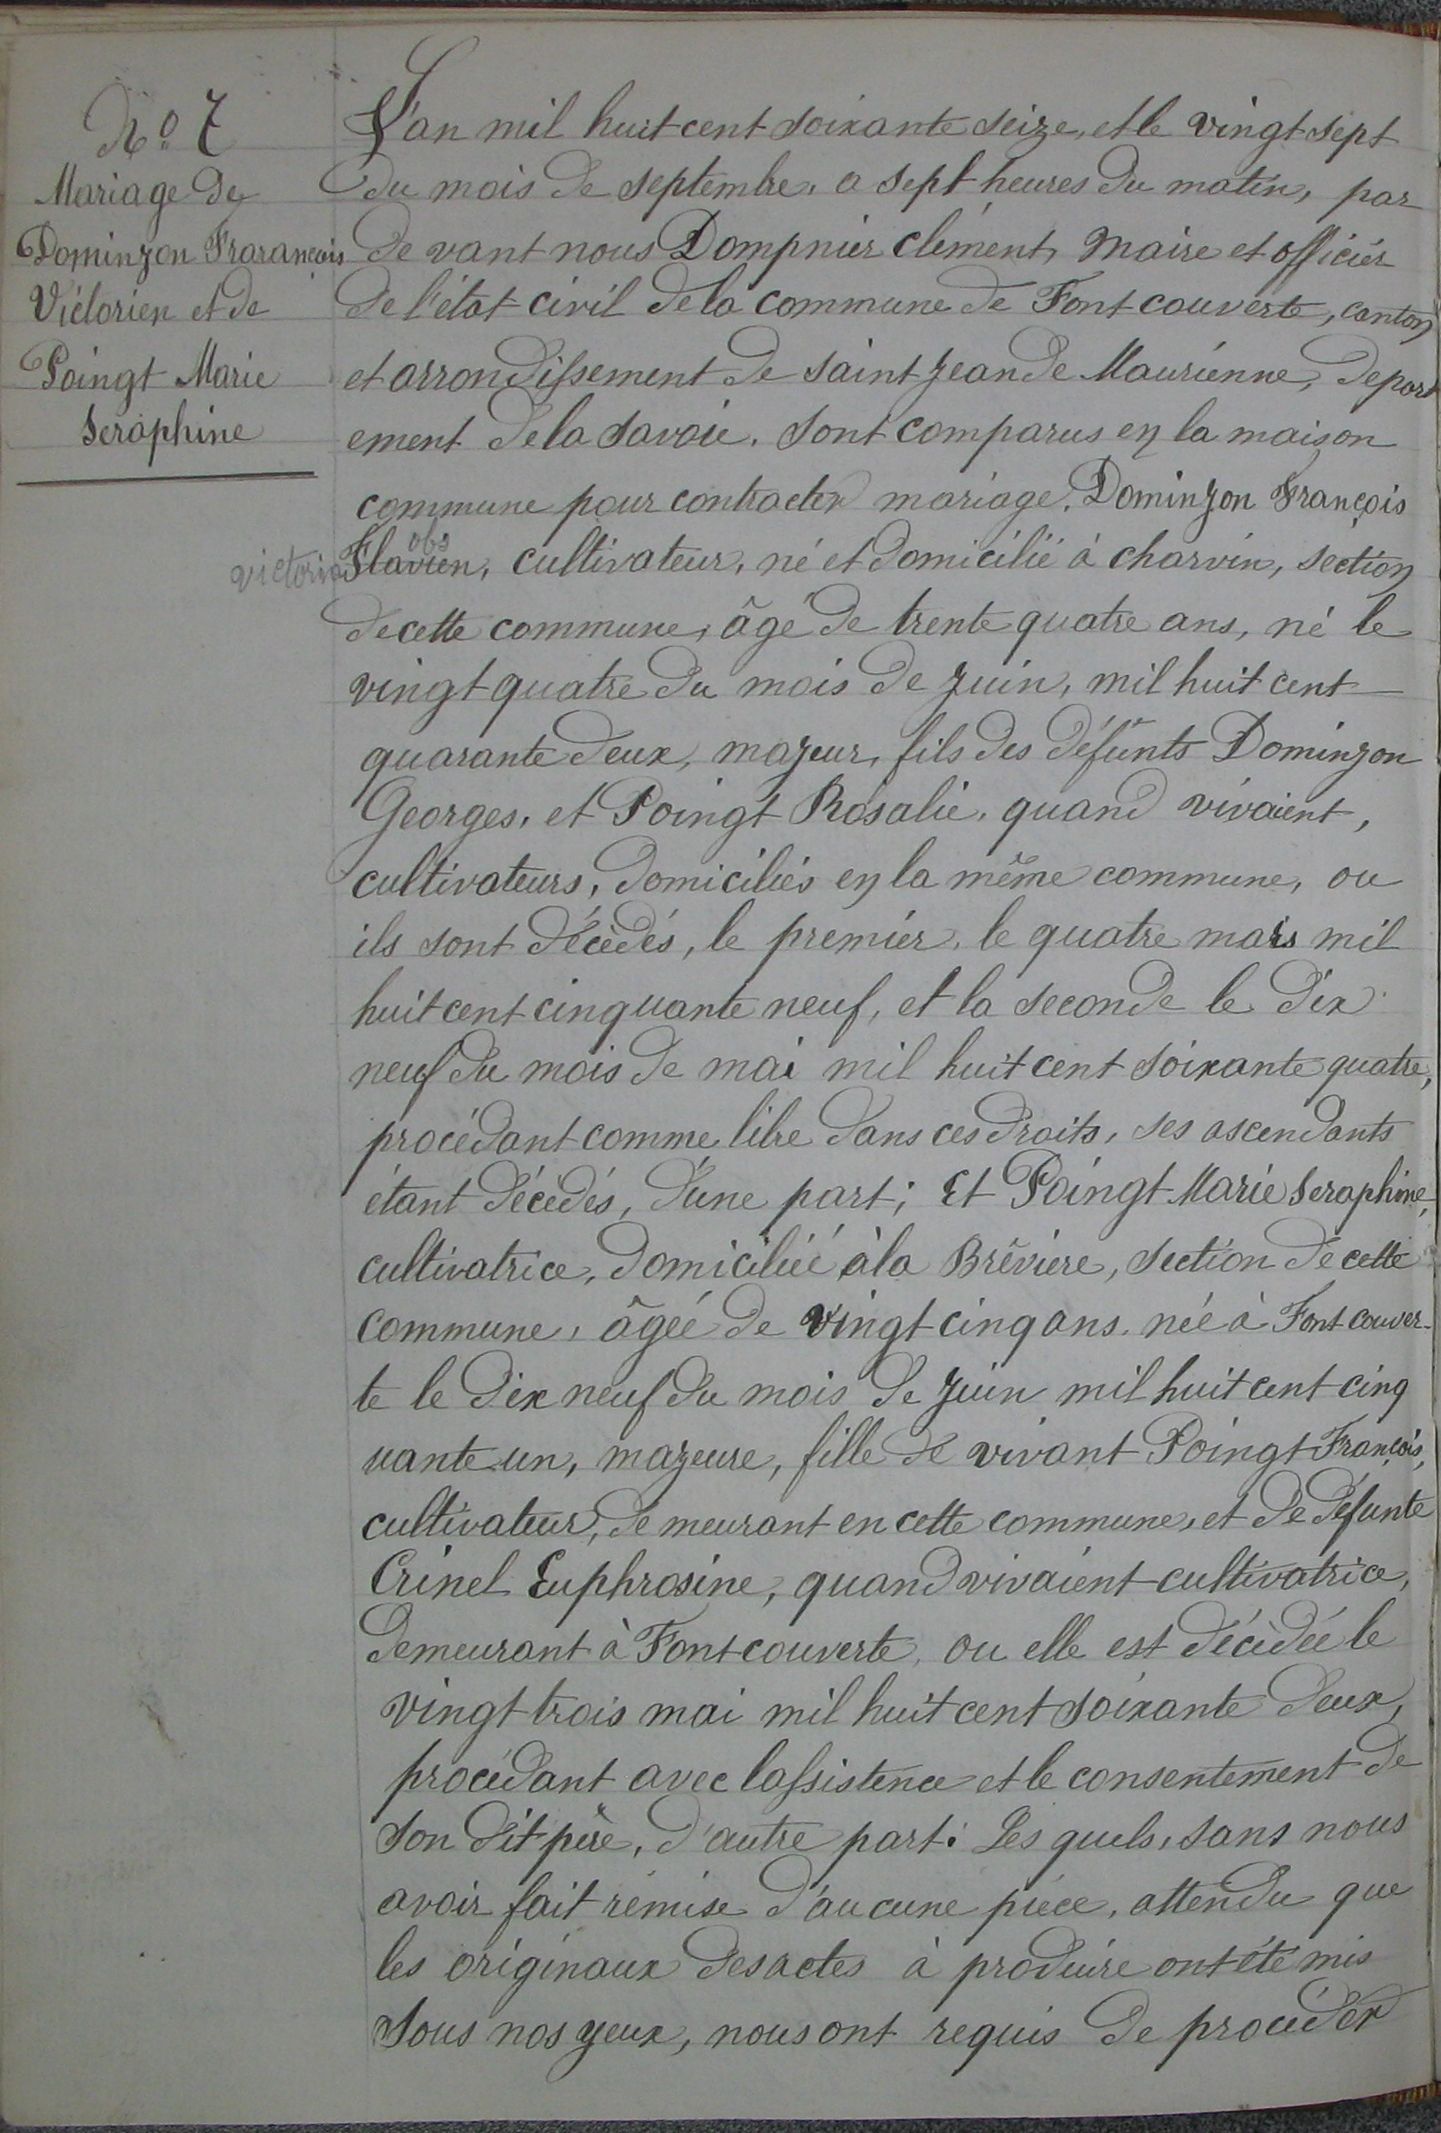 N.o 7
Mariage de
Dominjon Frarançois
Victorien et de
Poingt Marie
Seraphine
L'an mil huit cent soixante seize, et le vingt sept
du mois de septembre, a sept heures du matin, par
de vant nous Dompnier clément, Maire et officier
de l'état civil de la commune de Fontcouverte, canton
et arrondissement de saint jean de Maurienne, depart
ement de la savoie. sont comparus en la maison
commune pour contracter mariage. Dominjon François
victorin Flavien, obs cultivateur, né et domicilié à charvin, section
de cette commune, âgé de trente quatre ans, né le
vingt quatre du mois de juin, mil huit cent
quarante deux, majeur, fils des défunts Dominjon
Georges, et Poingt Rosalie, quand vivaient,
cultivateurs, domiciliés en la même commune, ou
ils sont décédés, le premier, le quatre mars mil
huit cent cinquante neuf, et la seconde le dix
neuf du mois de mai mil huit cent soixante quatre,
procédant comme libre dans ces droits, ses ascendants
étant décédés, d'une part; Et Poingt Marie Seraphine,
cultivatrice, domiciliée à la Brévière, section de cette
commune, âgée de vingt cinq ans, née à Font couver-
te le dix neuf du mois de juin mil huit cent cinq
uante un, majeure, fille de vivant Poingt François,
cultivateur, de meurant en cette commune, et de défunte
Crinel Euphrosine, quand vivaient cultivatrice,
demeurant à Fontcouverte, ou elle est décédée le
vingt trois mai mil huit cent soixante deux,
procédant avec lassistence et le consentement de
son dit père, d'autre part: Les quels, sans nous
avoir fait remise d'aucune pièce, attendu que
les originaux des actes à produire ont été mis
sous nos yeux, nous ont requis de procéder